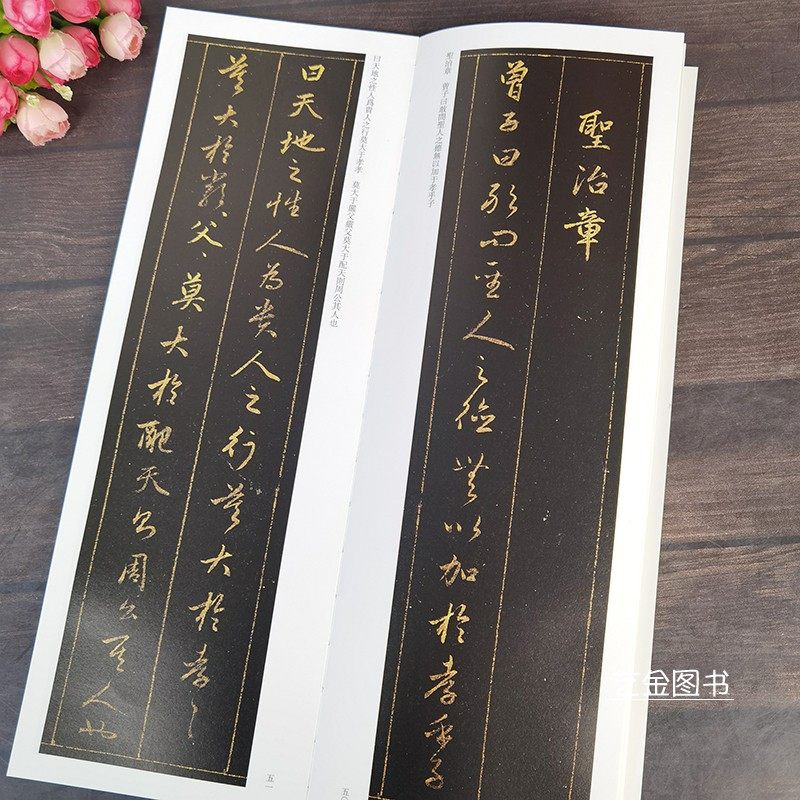 聖治章
曾子曰敢問聖人之德無以加於孝乎子
聖治章　曾子曰敢問聖人之德無以加于孝乎子
五〇
曰天地之性人為貴人之行莫大於孝〻
莫大於嚴〻父〻莫大於配天則周公其人也
曰天地之性人爲貴人之行莫大于孝孝　莫大于嚴父嚴父莫大于配天則周公其人也
五一
金图书